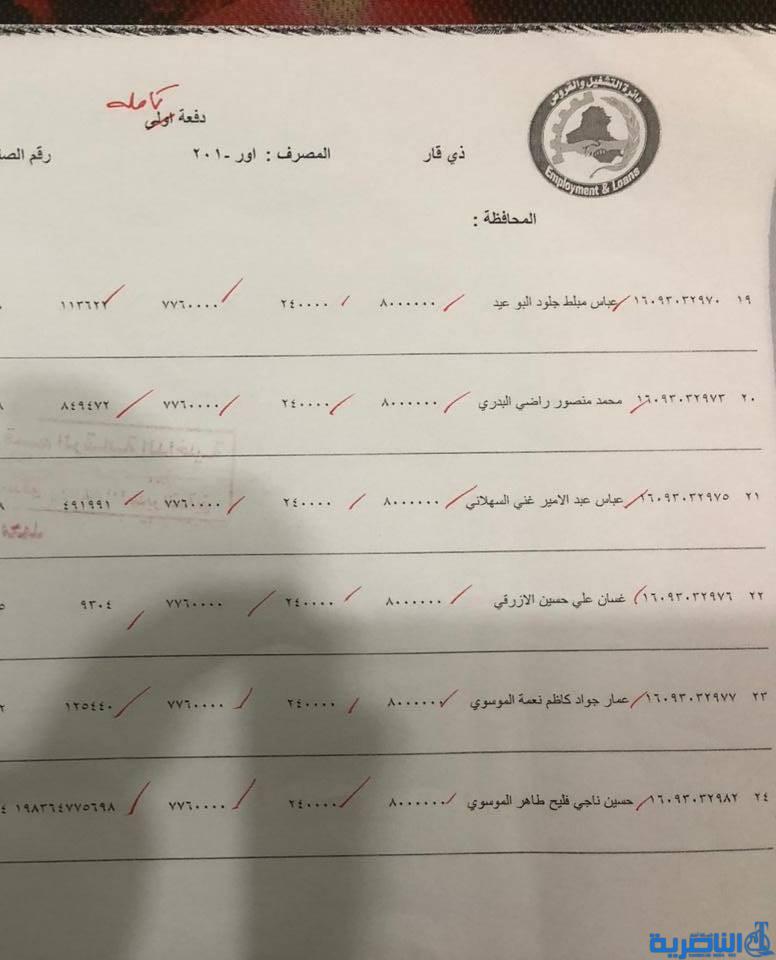 دائرة التشغيل والقروض
Employment & Loans
كاملة
دفعة اولى
ذي قار المصرف : اور -٢٠١
المحافظة :
١٩ ١٦٠٩٣٠٣٢٩٧٠ عباس مبلط جلود البو عيد ٨٠٠٠٠٠٠ ٢٤٠٠٠٠ ٧٧٦٠٠٠٠ ١١٣٦٢٢
٢٠ ١٦٠٩٣٠٣٢٩٧٣ محمد منصور راضي البدري ٨٠٠٠٠٠٠ ٢٤٠٠٠٠ ٧٧٦٠٠٠٠ ٨٤٩٤٧٢
٢١ ١٦٠٩٣٠٣٢٩٧٥ عباس عبد الامير غني السهلاني ٨٠٠٠٠٠٠ ٢٤٠٠٠٠ ٧٧٦٠٠٠٠ ٤٩١٩٩١
٢٢ ١٦٠٩٣٠٣٢٩٧٦ غسان علي حسين الازرقي ٨٠٠٠٠٠٠ ٢٤٠٠٠٠ ٧٧٦٠٠٠٠ ٩٣٠٤
٢٣ ١٦٠٩٣٠٣٢٩٧٧ عمار جواد كاظم نعمة الموسوي ٨٠٠٠٠٠٠ ٢٤٠٠٠٠ ٧٧٦٠٠٠٠ ١٢٥٤٤٠
٢٤ ١٦٠٩٣٠٣٢٩٨٢ حسين ناجي فليح طاهر الموسوي ٨٠٠٠٠٠٠ ٢٤٠٠٠٠ ٧٧٦٠٠٠٠ ١٩٨٣٦٤٧٧٥٦٩٨
الناصرية